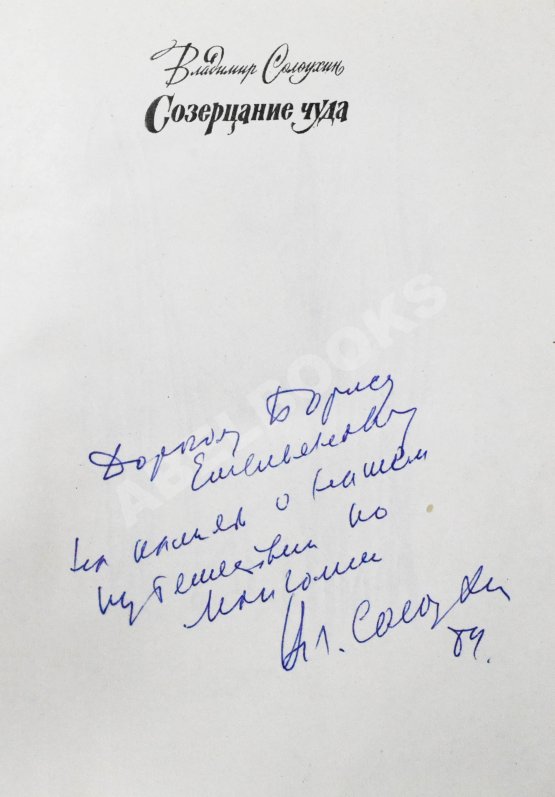 Владимир Солоухин
Созерцание чуда
Дорогому Борису
Емельянову
на память о нашем
путешествии по
Монголии
Вл. Солоухин
84.
ABELBOOKS